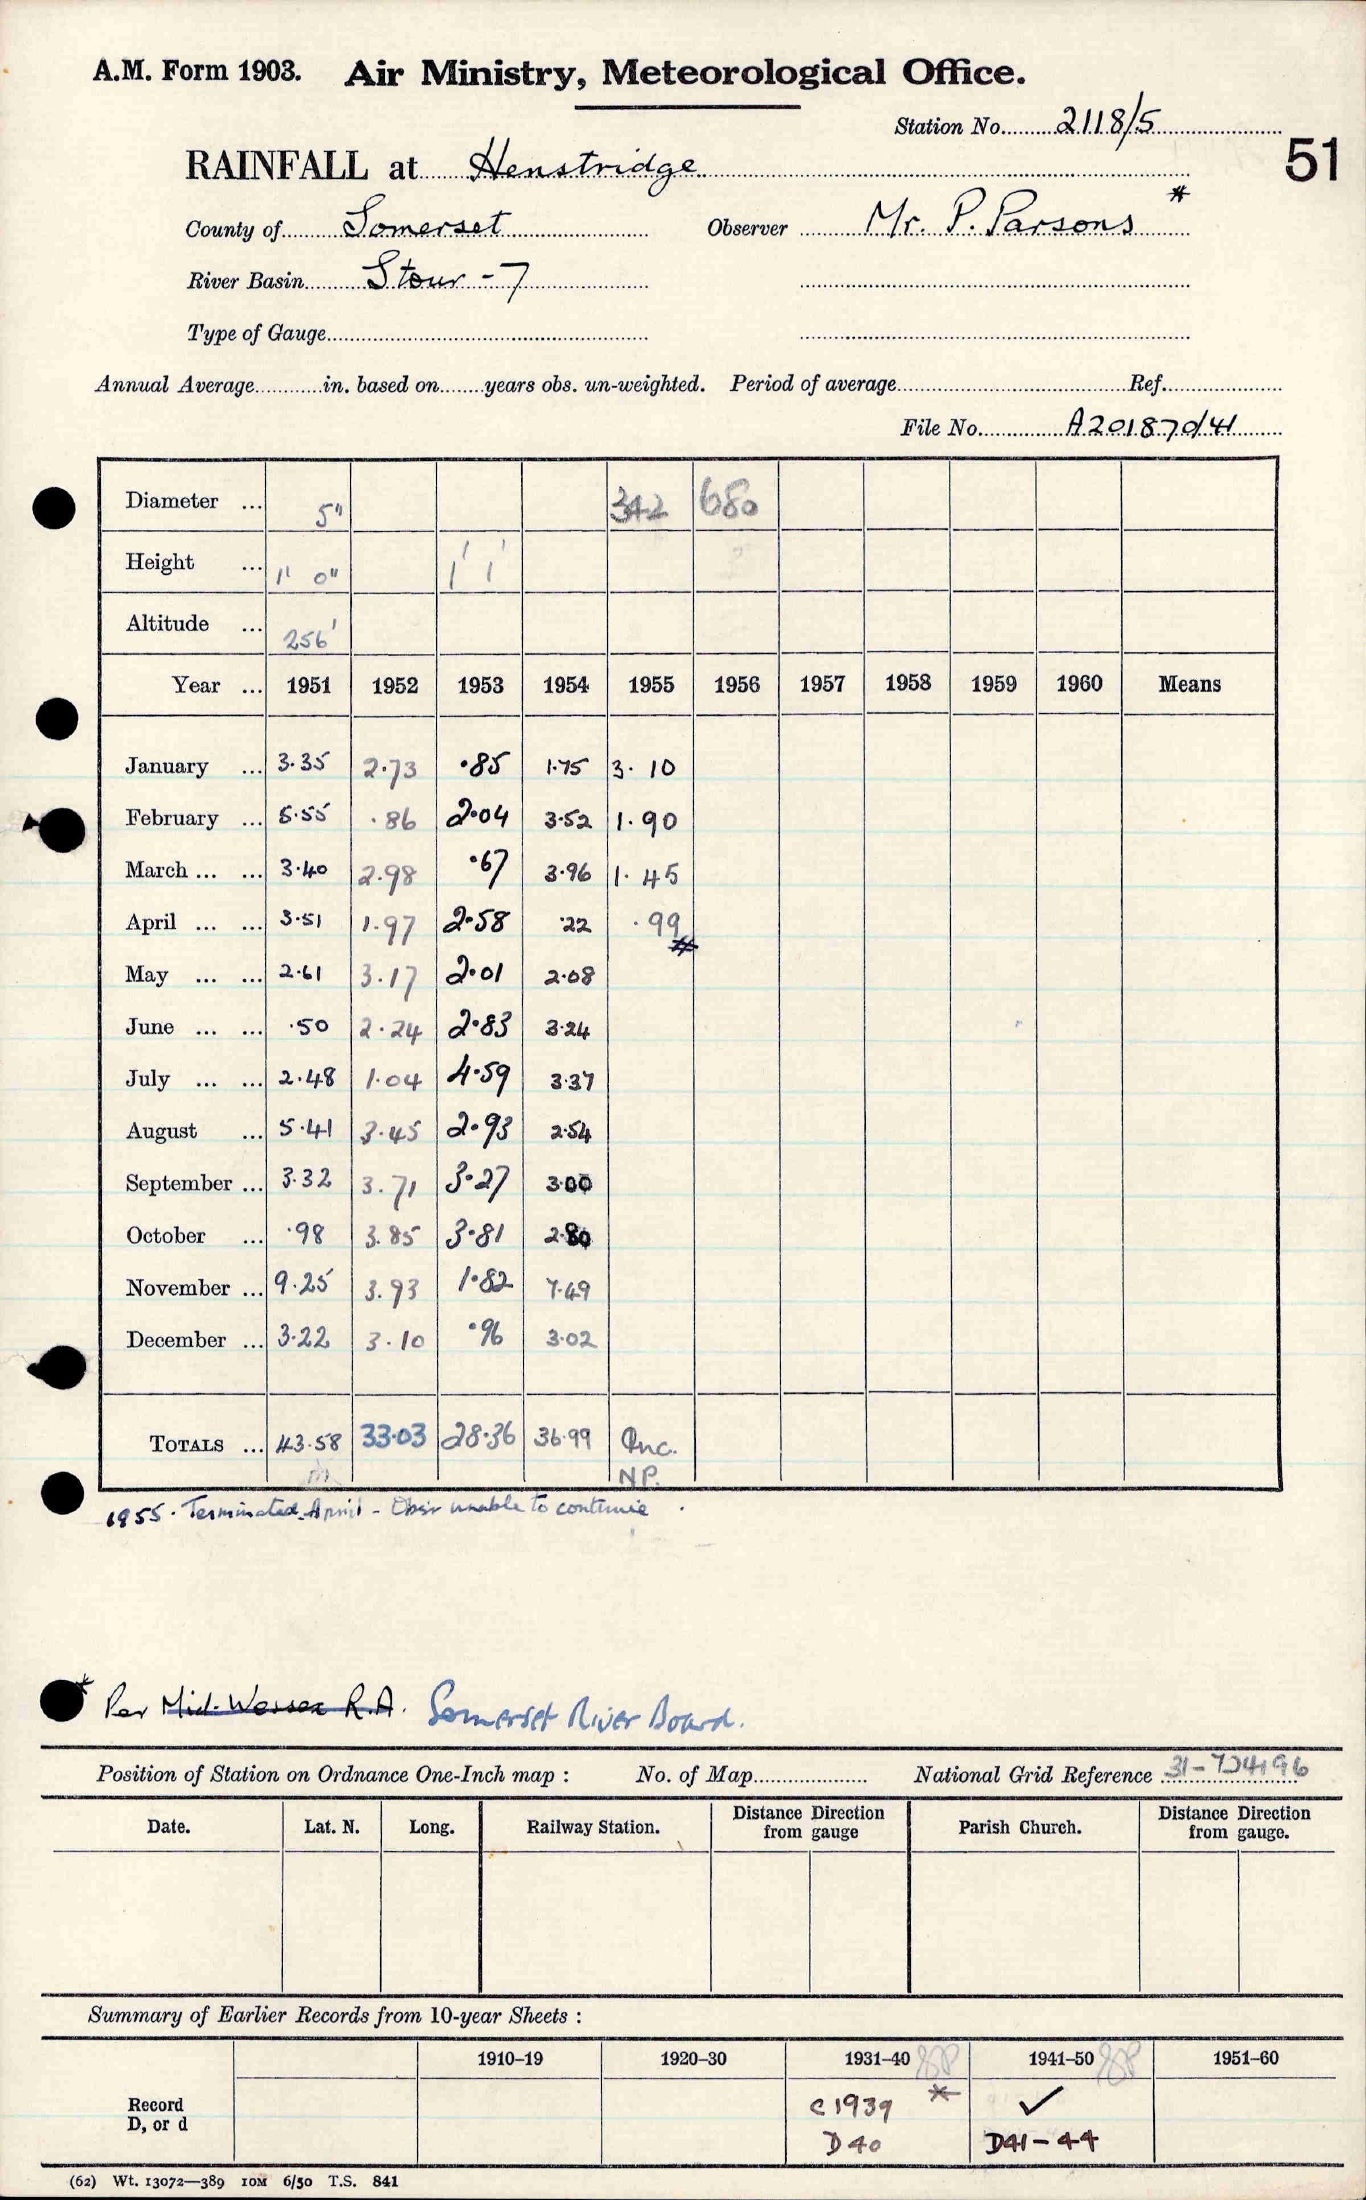 A.M. Form 1903. Air Ministry, Meteorological Office.
Station No. 2118/5
RAINFALL at Henstridge
51
County of Somerset Observer Mr. P. Parsons *
River Basin Stour - 7
Type of Gauge
Annual Average in. based on years obs. un-weighted. Period of average Ref.
File No. A201870/41
Diameter ... 5" 342 680
Height ... 1' 0" 1' 1'
Altitude ... 256'
Year ... 1951 1952 1953 1954 1955 1956 1957 1958 1959 1960 Means
January ... 3.35 2.73 .85 1.75 3.10
February ... 5.55 .86 2.04 3.52 1.90
March ... ... 3.40 2.98 .67 3.96 1.45
April ... ... 3.51 1.97 2.58 .22 .99 #
May ... ... 2.61 3.17 2.01 2.08
June ... ... .50 2.24 2.83 3.24
July ... ... 2.48 1.04 4.59 3.37
August ... 5.41 3.45 2.93 2.54
September ... 3.32 3.71 3.27 3.00
October ... .98 3.85 3.81 2.80
November ... 9.25 3.93 1.82 7.49
December ... 3.22 3.10 .96 3.02
TOTALS ... 43.58 33.03 28.36 36.99 Inc.
NP.
1955. Terminated April - Obsr unable to continue.
* Per Mid-Wessex R.A. Somerset River Board.
Position of Station on Ordnance One-Inch map : No. of Map National Grid Reference 31-724196
Date. Lat. N. Long. Railway Station. Distance Direction from gauge Parish Church. Distance Direction from gauge.
Summary of Earlier Records from 10-year Sheets :
1910–19 1920–30 1931–40 1941–50 1951–60
Record c1939 * ✓
D, or d D40 D41-44
(62) Wt. 13072—389 10M 6/50 T.S. 841